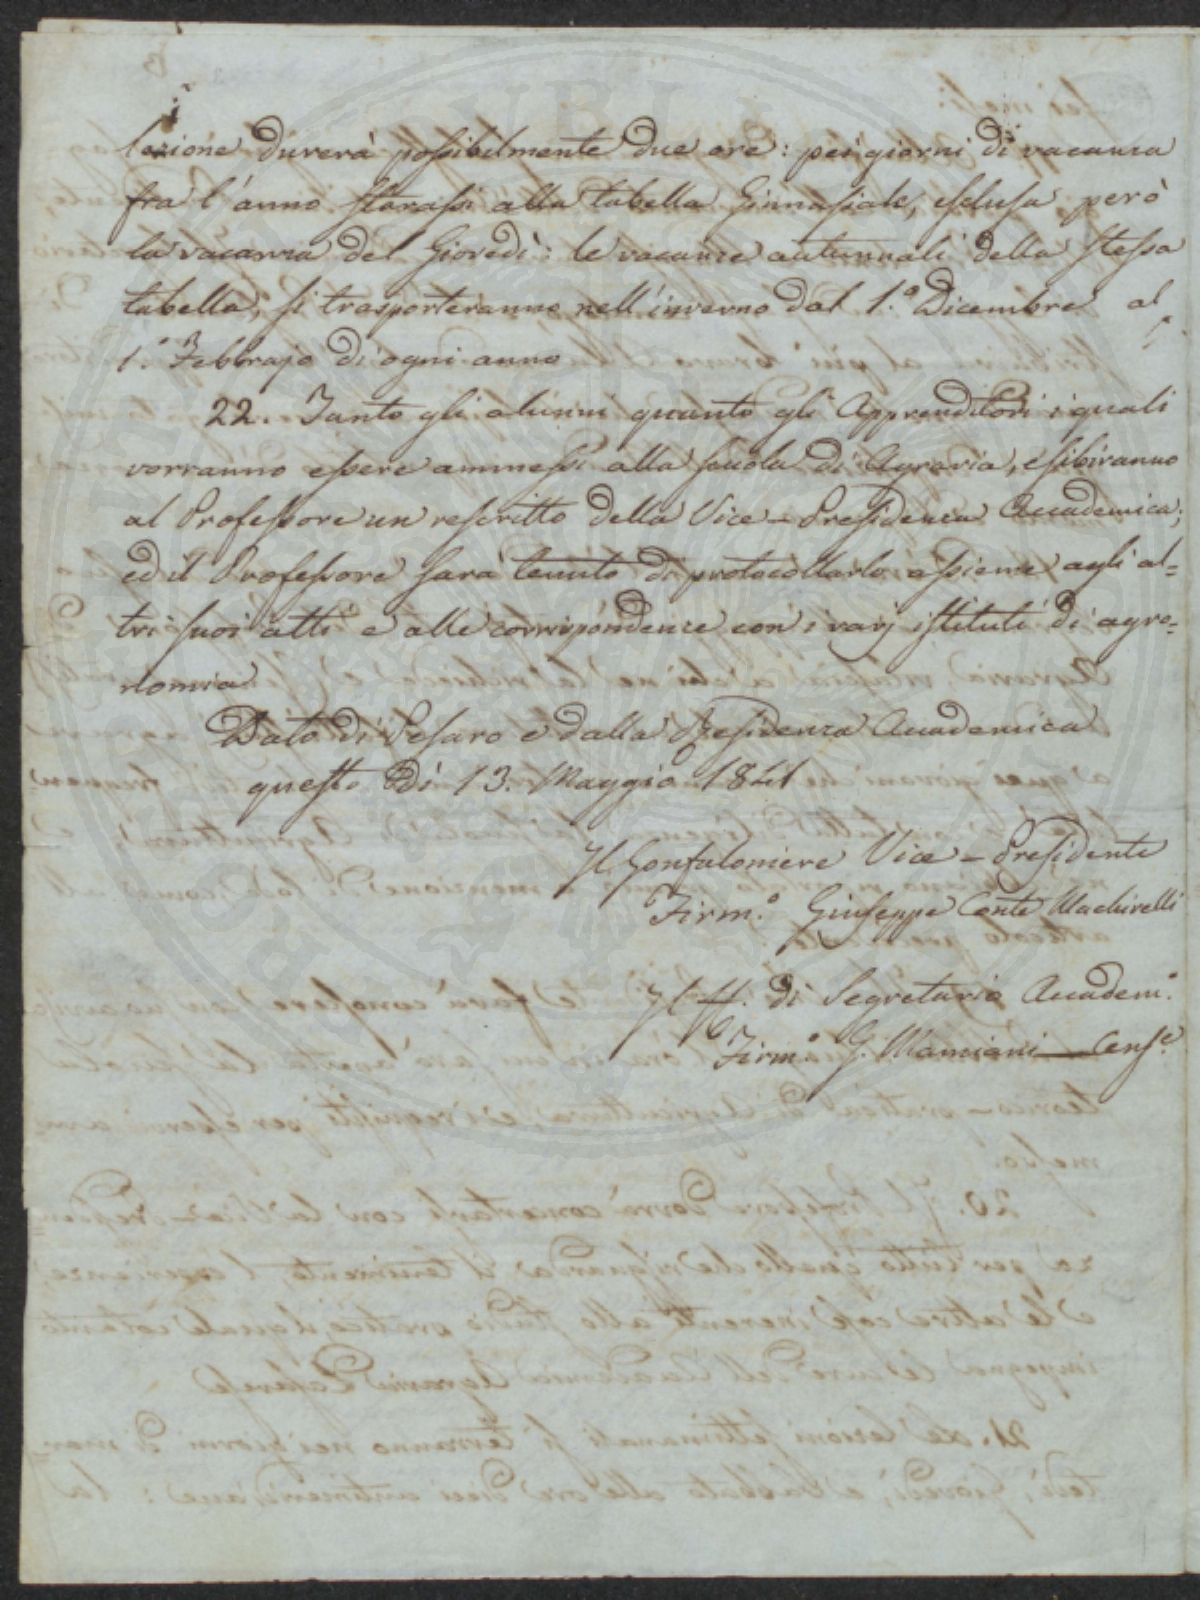 lezione durerà possibilmente due ore: pei giorni di vacanza
fra l'anno starassi alla tabella Ginnasiale, esclusa però
la vacanza del Giovedì: le vacanze autunnali della stessa
tabella, si trasporteranno nell'inverno dal 1.° Dicembre al
1.° Febbrajo di ogni anno
22. Tanto gli alunni quanto gli Apprenditori i quali
vorranno essere ammessi alla scuola di Agraria, esibiranno
al Professore un rescritto della Vice-Presidenza Accademica;
ed il Professore sarà tenuto di protocollarlo assieme agli al=
tri suoi atti e alle corrispondenze con i varj istituti di agro=
nomia
Dato di Pesaro e dalla Presidenza Accademica
questo dì 13. Maggio 1841
Il Gonfaloniere Vice-Presidente
Firm.° Giuseppe Conte Machirelli
Il ff. di Segretario Accadem.°
Firm.° G. Mamiani — Cens.e